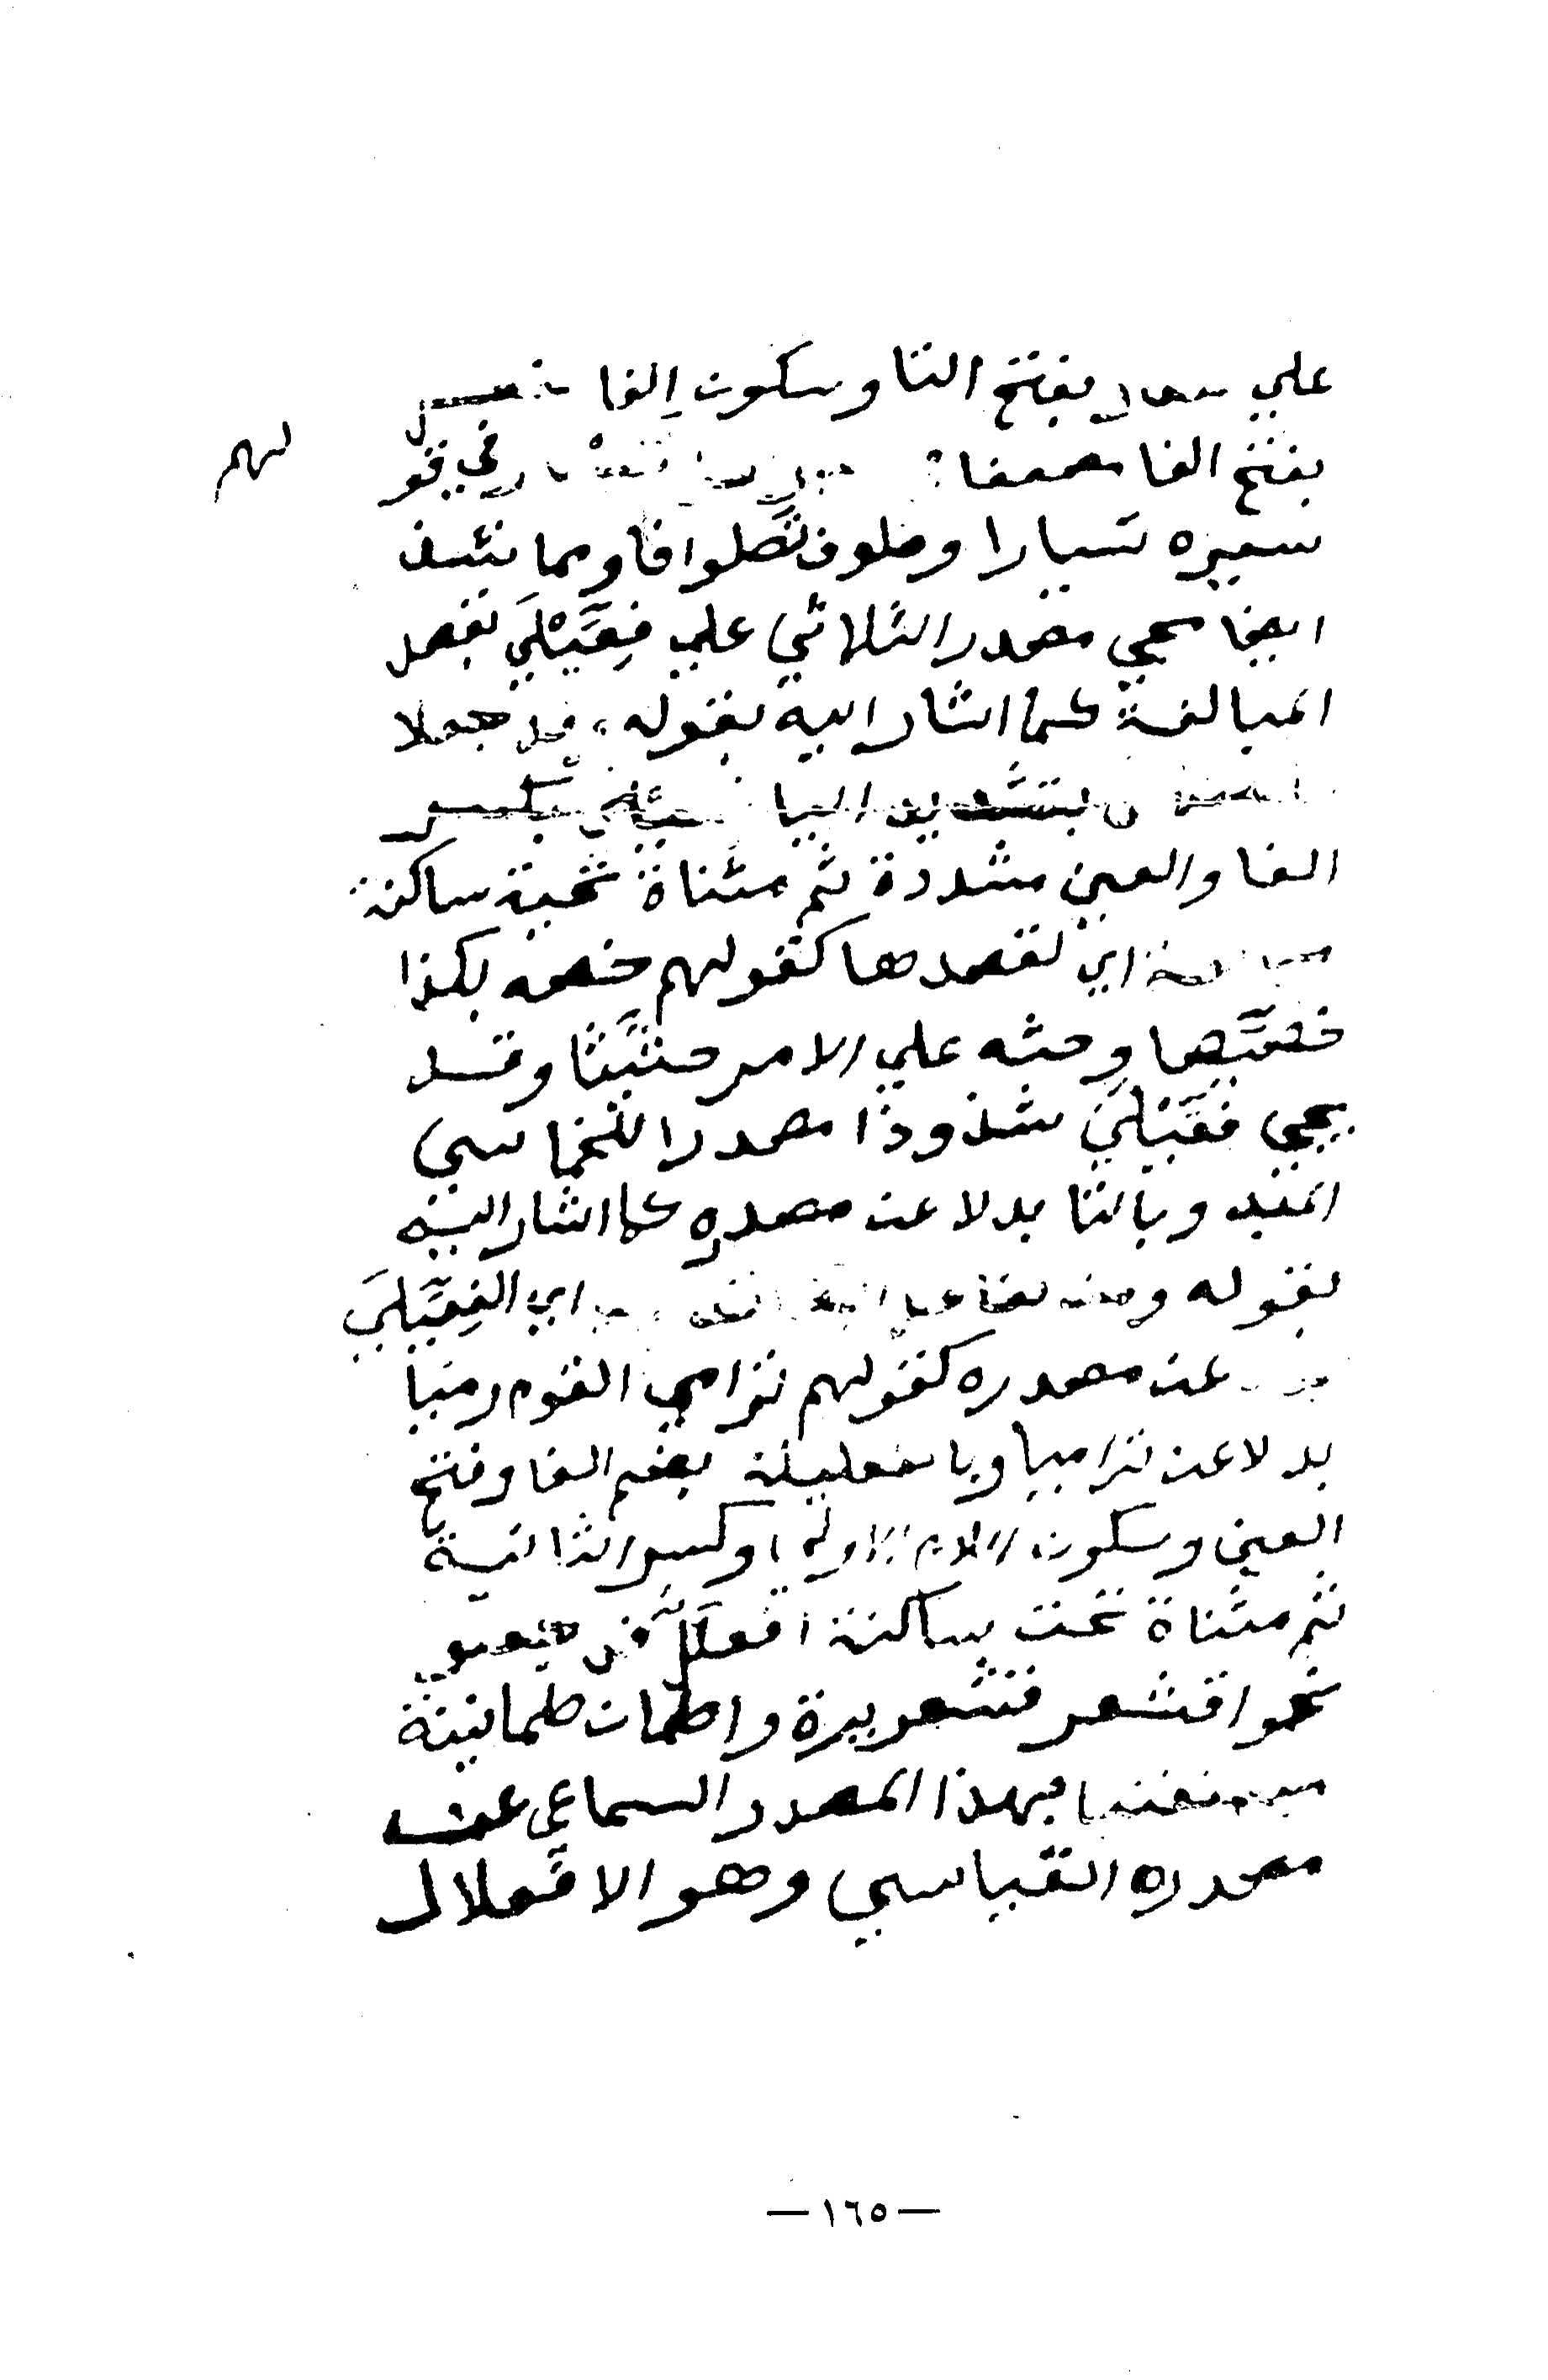 علي تفعال بفتح التا وسكون الفا
بفتح الفا في قو
لهم
سيره تسيارا وطوف تطوافا ومما يشذ
ايضا مجي مصدر الثلاثي علي فِعِّيْلَي بقصد
المبالغة كما اشار اليه بقوله وقد جعلا
بتشديد اليا فعيلي بكسر
الفا والعين مشددة ثم مثناة تحية ساكنة
مبالغة اي لقصدها كقولهم خصه بكذا
خصيصا وحثه علي الامر حثيثا وقد
يجي فعيلي شذوذا مصدرا للخماسي
المبد وبالتا بدلا عن مصدره كما اشار اليه
بقوله ومن تفاعل ايضا اي الفِعِّيلَي
عن مصدره كقولهم ترامي القوم رميا
بدلا عن تراميا وبالفعليلة بضم الفا وفتح
العين وسكون اللام الاولي وكسر الثانية
ثم مثناة تحت ساكنة افعلل
نحو اقشعر قشعريرة واطمان طمانينة
مستغنيا بهذا المصدر السماعي عن
مصدره القياسي وهو الافعلال
— ١٦٥ —